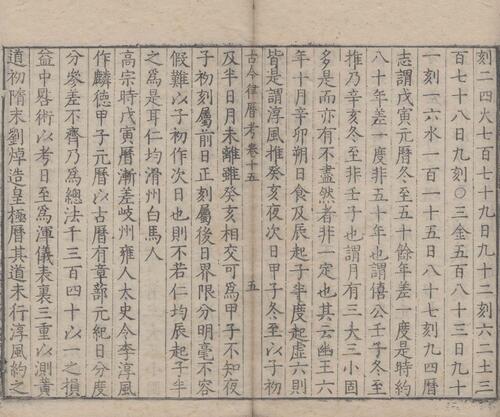 刻二四火七百七十九日九十二刻六二土三
百七十八日九刻〇三金五百八十三日九十
一刻一六水一百一十五日八十七刻九四曆
志謂戊寅元曆冬至五十餘年差一度是時約
八十年差一度非五十年也謂僖公壬子冬至
推乃辛亥冬至非壬子也謂月有三大三小固
多是而亦有不盡然者非一定也其云幽王六
年十月辛卯朔日食及辰起子半度起虛六則
皆是謂淳風推癸亥夜次日甲子冬至以子初
古今律曆考卷十五
五
及半日月未離雖癸亥相交可為甲子不知夜
子初刻屬前日正刻屬後日界限分明毫不容
假難以子初作次日也則不若仁均辰起子半
之為是耳仁均滑州白馬人
高宗時戊寅曆漸差岐州雍人太史令李淳風
作麟德甲子元曆以古曆有章蔀元紀日分度
分參差不齊乃為總法千三百四十以一之損
益中晷術以考日至為渾儀表裏三重以測黃
道初隋末劉焯造皇極曆其道未行淳風約之